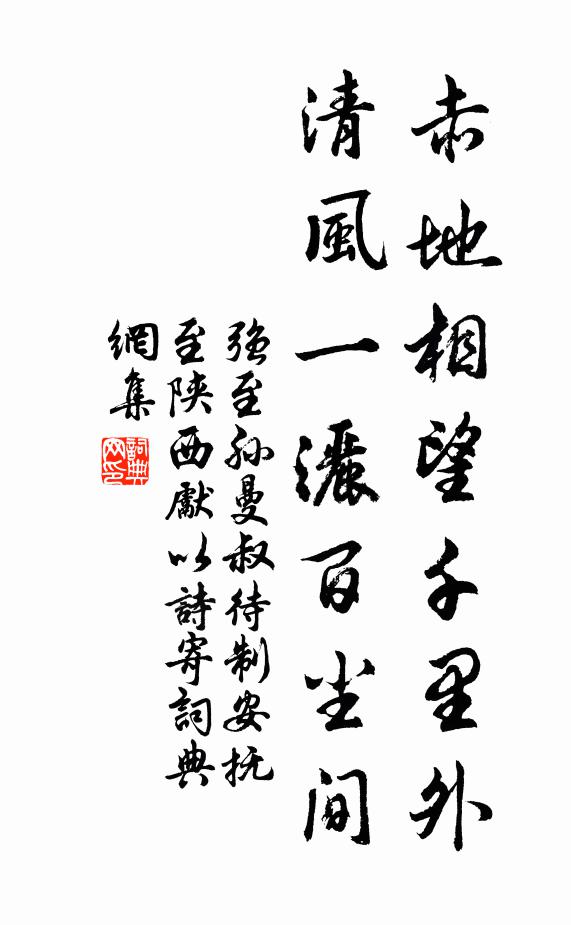 赤地相望千里外
清風一灑百尘间
强至孙曼叔待制安抚
至陕西獻以詩寄詞典
網集
詞典网印